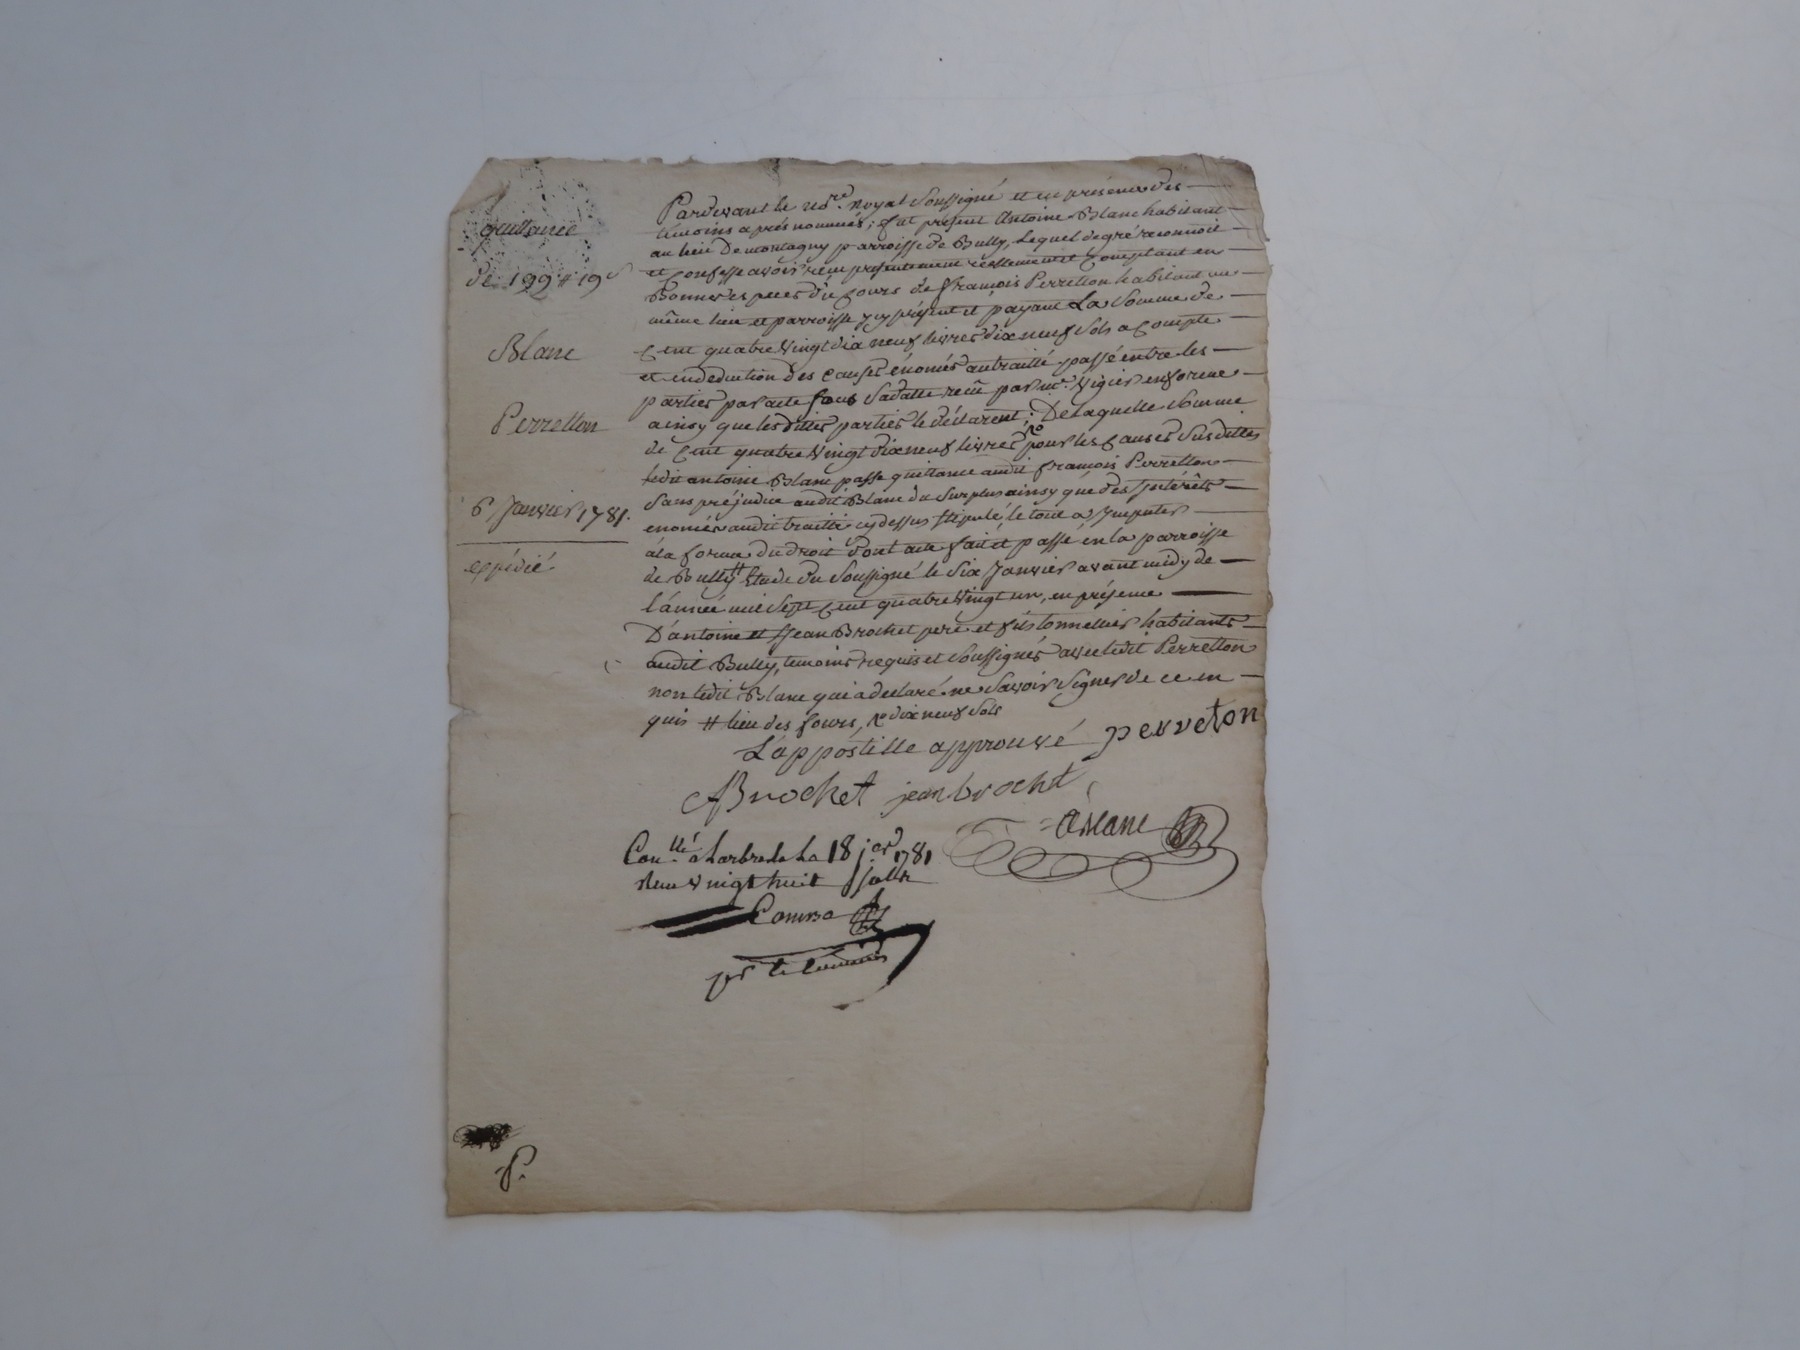 quittance
de 199# 19s
Blanc
Perretton
6 Janvier 1781.
expédié
Pardevant le nore. Royal Soussigné et en présence des
temoins aprés nommés; fut présent Antoine Blanc habitant
au lieu De montagny parroisse de Bully, Lequel de gré reconnoit
et Confesse avoir reçu présentement réellement et Comptant en
Bonnes especes du Cours de françois Perretton habitant au
même lieu et parroisse y cy présent et payant La Somme de
Cent quatre Vingt dix neuf livres dix neuf Sols a Compte
et en deduction des Causes énoncés au traitté passé entre les
parties par acte sous Sa datte reçu par me. Vigier en forme
ainsy que les dittes parties le déclarent; De Laquelle Somme
de Cent quatre Vingt dix neuf livres ro pour les Causes Susdittes
ledit antoine Blanc passe quittance audit françois Perretton
Sans préjudice audit Blanc du Surplus ainsy que des Intérêts
enoncés audit traitté cy dessus stipulé, le tout a Imputer
á la forme du droit Dont acte fait et passé en la parroisse
de Bully # Etude du Soussigné le Six Janvier avant midy de
l'année mil Sept Cent quatre Vingt un, en présence
D'antoine et Jean Brochet pere et fils tonnelliers habitants
audit Bully, temoins requis et Soussignés avec ledit Perretton
non ledit Blanc qui a declaré ne Savoir Signer de ce en
quis # lieu des fours, ro dix neuf Sols
L'appostille approuvé perreton
ABrochet jean brocht
Conllé a Larbresle La 18 jer 1781
Reçu vingt huit Sols